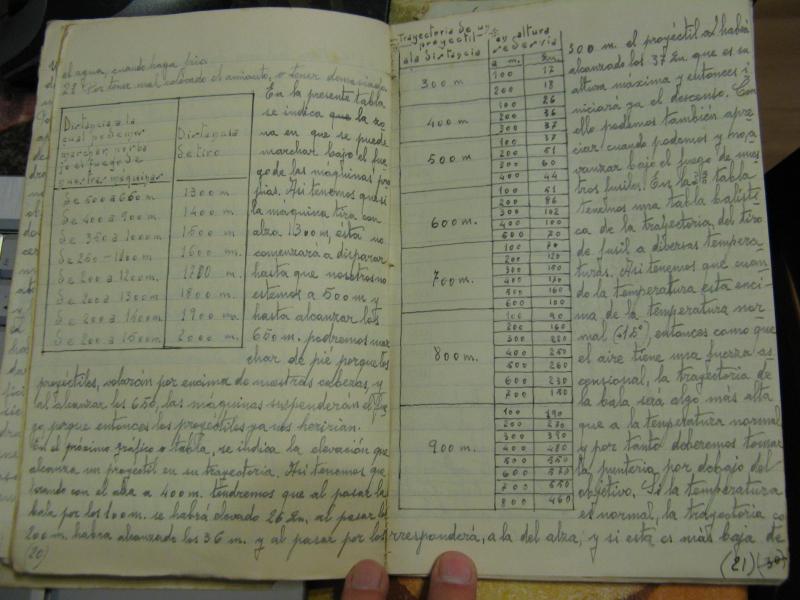 el agua, cuando haga frio
2ª Por tener mal colocado el amianto, o tener demasiado
Distancia a la
cual podemos
marchar
nuestras máquinas
Distancia
de tiro
de 500 a 650 m. 1300 m.
de 400 a 900 m. 1400 m.
de 350 a 1000 m 1500 m.
de 250 - 1100 m. 1600 m.
de 200 a 1200 m. m.
de 200 a 1300 m 1800 m.
de 200 a 1400 m. 1900 m.
de 200 a 1500 m. 2000 m.
En la presente tabla
se indica la zo-
na en que se puede
marchar bajo el fue-
go de las máquinas pro-
pias. Asi tenemos que si
la máquina tira con
alza 1300 m, esta no
comenzará a disparar
hasta que nosotros no
estemos a 500 m y
hasta alcanzar los
650 m. podremos mar
char de pié porque los
proyéctiles, volarán por encima de nuestras cabezas, y
al alcanzar los 650, las máquinas suspenderán el fue
go porque entonces los proyectiles ya nos herirían.
En el próximo gráfico o tabla, se indica la elevación que
alcanza un proyectil en su trayectoria. Asi tenemos que
tirando con el alza a 400 m. tendremos que al pasar la
bala por los 100 m. se habrá elevado 26 cm, al pasar los
200 m. habra alcanzado los 36 m. y al pasar por los
(20)
Trayectoria de un
proyectil
a la distancia
altura
m. cm.
300 m.
100 17
200 18
400 m.
100 26
200 36
300 37
500 m.
100 37
200 51
300 60
400 44
600 m.
100 51
200 86
300 102
400 100
500 70
700 m.
100
200 120
300
400
500 160
600 100
800 m.
100 90
200 160
300 220
400 250
500 260
600 230
700
900 m.
100 190
200 270
300 390
400 480
500 550
600
700
800 460
300 m. el proyéctil habrá
alcanzado los 37 cm. que es su
altura máxima y entonces i
niciara ya el descenso. Con
ello podemos también apre-
ciar cuando podemos y
vanzar bajo el fuego de nues
tros fusiles. En la 3ª tabla
tenemos una tabla balísti
ca de la trayectoria del tiro
de fusil a diversas tempera-
turas. Asi tenemos que cuan
do la temperatura está enci-
ma de la temperatura nor-
mal (15º), entonces como que
el aire tiene una fuerza as-
censional, la trayectoria de
la bala sera algo más alta
que a la temperatura normal
y por tanto deberemos tomar
la punteria por debajo del
objetivo. Si la temperatura
es normal, la trayectoria co
rresponderá, a la del alza, y si está es más baja de
(21) (30)